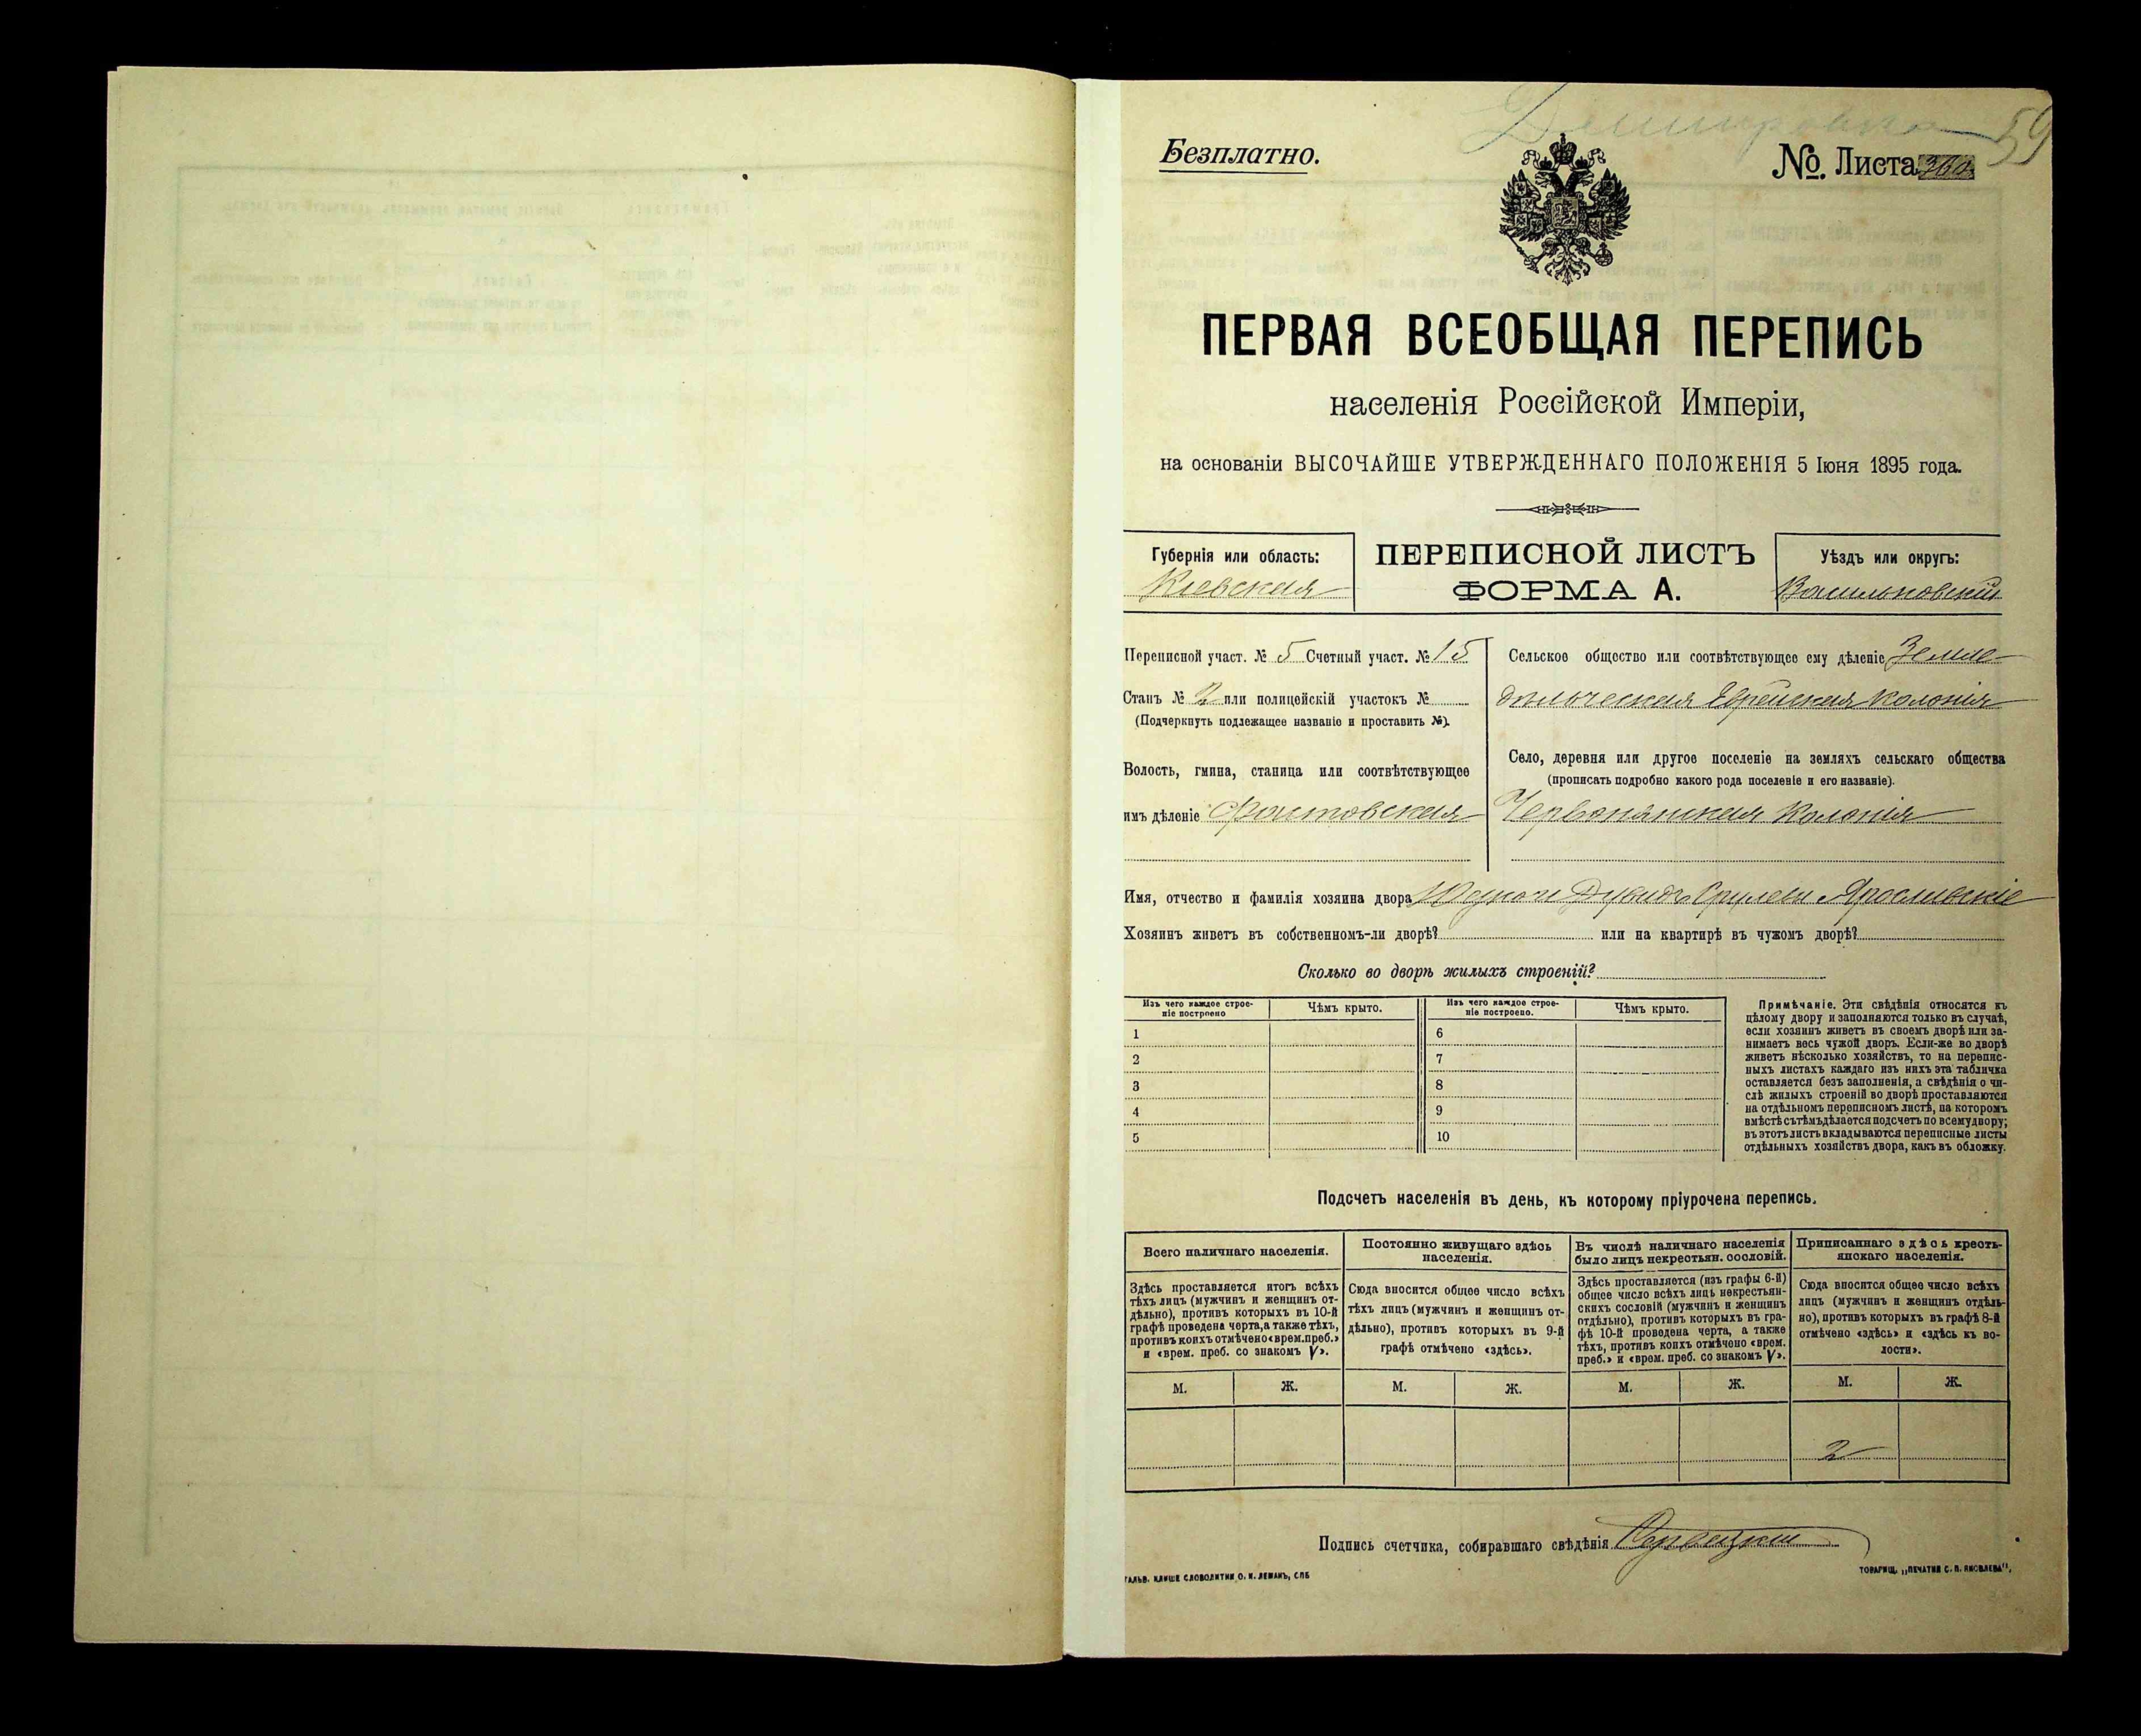 59
Безплатно.
№. Листа
ПЕРВАЯ ВСЕОБЩАЯ ПЕРЕПИСЬ
населенія Россійской Имперіи,
на основаніи ВЫСОЧАЙШЕ УТВЕРЖДЕННАГО ПОЛОЖЕНІЯ 5 Іюня 1895 года.
Губернія или область:
Кіевская
ПЕРЕПИСНОЙ ЛИСТЪ
ФОРМА А.
Уѣздъ или округъ:
Васильковскій
Переписной участ. № 5 Счетный участ. № 15
Станъ № 2 или полицейскій участокъ №
(Подчеркнуть подлежащее названіе и проставить №).
Волость, гмина, станица или соотвѣтствующее
имъ дѣленіе Фастовская
Сельское общество или соотвѣтствующее ему дѣленіе Земле-
дѣльческая Еврейская колонія
Село, деревня или другое поселеніе на земляхъ сельскаго общества
(прописать подробно какого рода поселеніе и его названіе).
Червонянская Колонія
Имя, отчество и фамилія хозяина двора Дувидъ Срулеви Ярославскіе
Хозяинъ живетъ въ собственномъ-ли дворѣ? или на квартирѣ въ чужомъ дворѣ?
Сколько во дворѣ жилыхъ строеній?
Изъ чего каждое строе-
ніе построено
Чѣмъ крыто.
Изъ чего каждое строе-
ніе построено.
Чѣмъ крыто.
1
2
3
4
5
6
7
8
9
10
Примѣчаніе. Эти свѣдѣнія относятся къ
цѣлому двору и заполняются только въ случаѣ,
если хозяинъ живетъ въ своемъ дворѣ или за-
нимаетъ весь чужой дворъ. Если-же во дворѣ
живетъ нѣсколько хозяйствъ, то на перепис-
ныхъ листахъ каждаго изъ нихъ эта табличка
оставляется безъ заполненія, а свѣдѣнія о чи-
слѣ жилыхъ строеній во дворѣ проставляются
на отдѣльномъ переписномъ листѣ, на которомъ
вмѣстѣ съ тѣмъ дѣлается подсчетъ по всему двору;
въ этотъ листъ вкладываются переписные листы
отдѣльныхъ хозяйствъ двора, какъ въ обложку.
Подсчетъ населенія въ день, къ которому пріурочена перепись.
Всего наличнаго населенія.
Постоянно живущаго здѣсь
населенія.
Въ числѣ наличнаго населенія
было лицъ некрестьян. сословій.
Приписаннаго здѣсь кресть-
янскаго населенія.
Здѣсь проставляется итогъ всѣхъ
тѣхъ лицъ (мужчинъ и женщинъ от-
дѣльно), противъ которыхъ въ 10-й
графѣ проведена черта, а также тѣхъ,
противъ коихъ отмѣчено «врем. преб.»
и «врем. преб. со знакомъ V».
Сюда вносится общее число всѣхъ
тѣхъ лицъ (мужчинъ и женщинъ от-
дѣльно), противъ которыхъ въ 9-й
графѣ отмѣчено «здѣсь».
Здѣсь проставляется (изъ графы 6-й)
общее число всѣхъ лицъ некрестьян-
скихъ сословій (мужчинъ и женщинъ
отдѣльно), противъ которыхъ въ гра-
фѣ 10-й проведена черта, а также
тѣхъ, противъ коихъ отмѣчено «врем.
преб.» и «врем. преб. со знакомъ V».
Сюда вносится общее число всѣхъ
лицъ (мужчинъ и женщинъ отдѣль-
но), противъ которыхъ въ графѣ 8-й
отмѣчено «здѣсь» и «здѣсь къ во-
лости».
М. Ж. М. Ж. М. Ж. М. Ж.
2
Подпись счетчика, собиравшаго свѣдѣнія
ГАЛЬВ. КЛИШЕ СЛОВОЛИТНИ О. И. ЛЕМАНЪ, СПБ
ТОВАРИЩ. „ПЕЧАТНЯ С. П. ЯКОВЛЕВА“,